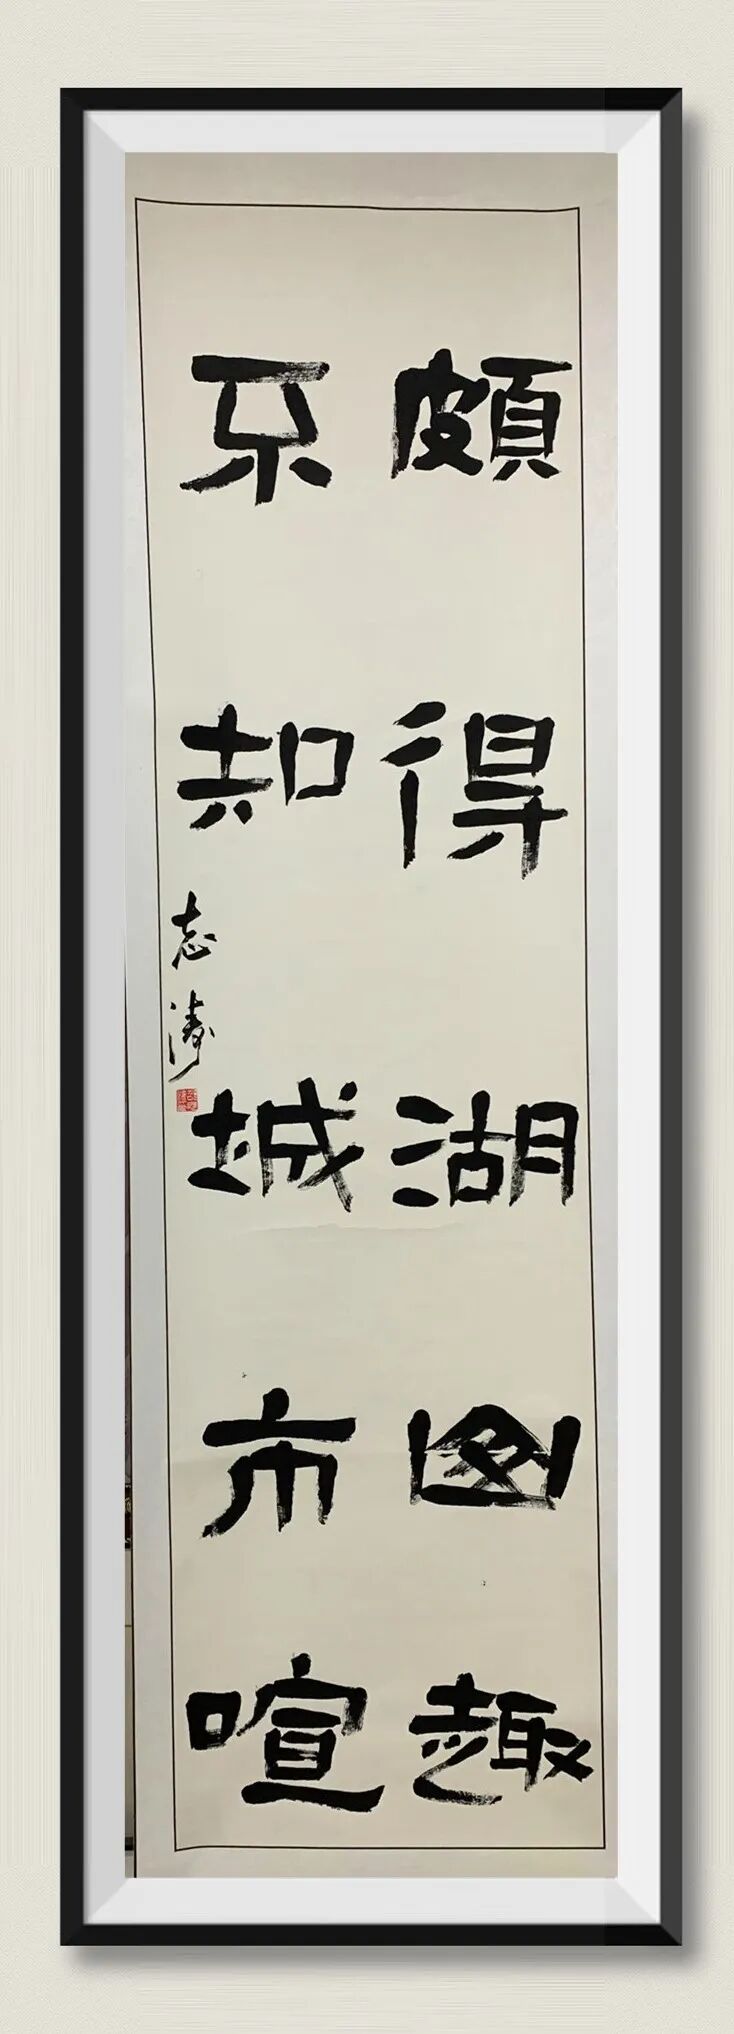 頗得湖山趣
不知城市喧
志涛